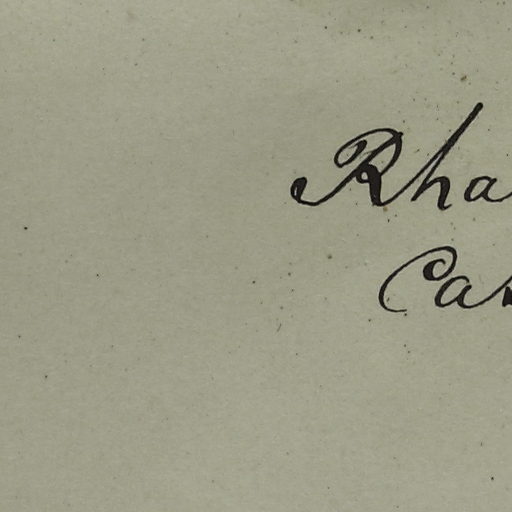 Rha
Cas